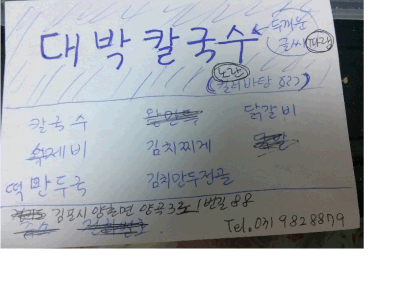 대박칼국수 ← 두꺼운 글씨 파랑
노란 컬러바탕
칼국수 왕만두 닭갈비
수제비 김치찌게
떡만두국 김치만두전골
김포시 양촌면 양곡3로 1번길 88
Tel. 031 9828879